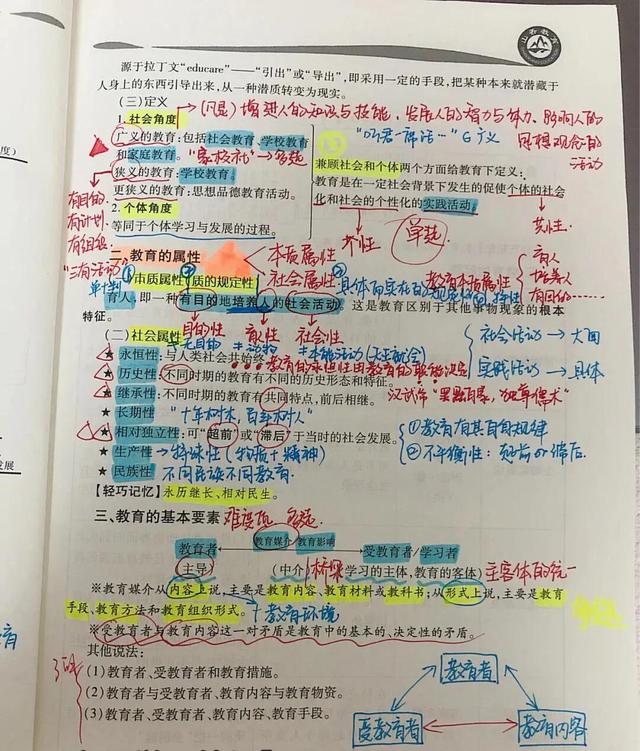 源于拉丁文“educare”——“引出”或“导出”，即采用一定的手段，把某种本来就潜藏于
人身上的东西引导出来，从一种潜质转变为现实。
(三)定义
(问题)增进人的知识与技能，发展人的智力与体力、影响人的
思想观念的
活动
1. 社会角度
“听君一席话…”∈广义
广义的教育：包括社会教育、学校教育
和家庭教育。
“家校社”→多选
狭义的教育：学校教育。
更狭义的教育：思想品德教育活动。
2. 个体角度
等同于个体学习与发展的过程。
兼顾社会和个体两个方面给教育下定义：
教育是在一定社会背景下发生的促使个体的社会
化和社会的个性化的实践活动。
个性
单选
共性
有目的
有计划
有组织
“三有活动”
单+判
二、教育的属性
本质属性
社会属性
(一)本质属性(质的规定性)
具体而实在的
教育本质属性
育人
培养人
有目的
育人，即一种有目的地培养人的社会活动。这是教育区别于其他事物现象的根本
特征。
目的性
育性
社会性
(二)社会属性
无目的
≠动物
≠本能活动
社会活动→大而
实践活动→具体
★永恒性：与人类社会共始终
教育的永恒性由教育的职能决定
★历史性：不同时期的教育有不同的历史形态和特征。
★继承性：不同时期的教育有共同特点，前后相继。
汉武帝“罢黜百家，独尊儒术”
★长期性
“十年树木，百年树人”
★相对独立性：可“超前”或“滞后”于当时的社会发展。
①教育有其自身规律
②不平衡性：超前or滞后
★生产性
→特殊性(物质+精神)
★民族性
不同民族不同教育
【轻巧记忆】永历继长、相对民生。
三、教育的基本要素
难度低 多选
教育者 教育媒介 教育影响 受教育者/学习者
(主导) (中介) 桥梁 (学习的主体，教育的客体)
主客体的统一
※教育媒介从内容上说，主要是教育内容、教育材料或教科书；从形式上说，主要是教育
手段、教育方法和教育组织形式。
+教育环境
※受教育者与教育内容这一对矛盾是教育中的基本的、决定性的矛盾。
其他说法：
(1)教育者、受教育者和教育措施。
(2)教育者与受教育者、教育内容与教育物资。
(3)教育者、受教育者、教育内容、教育手段。
了解
教育者
受教育者
教育内容